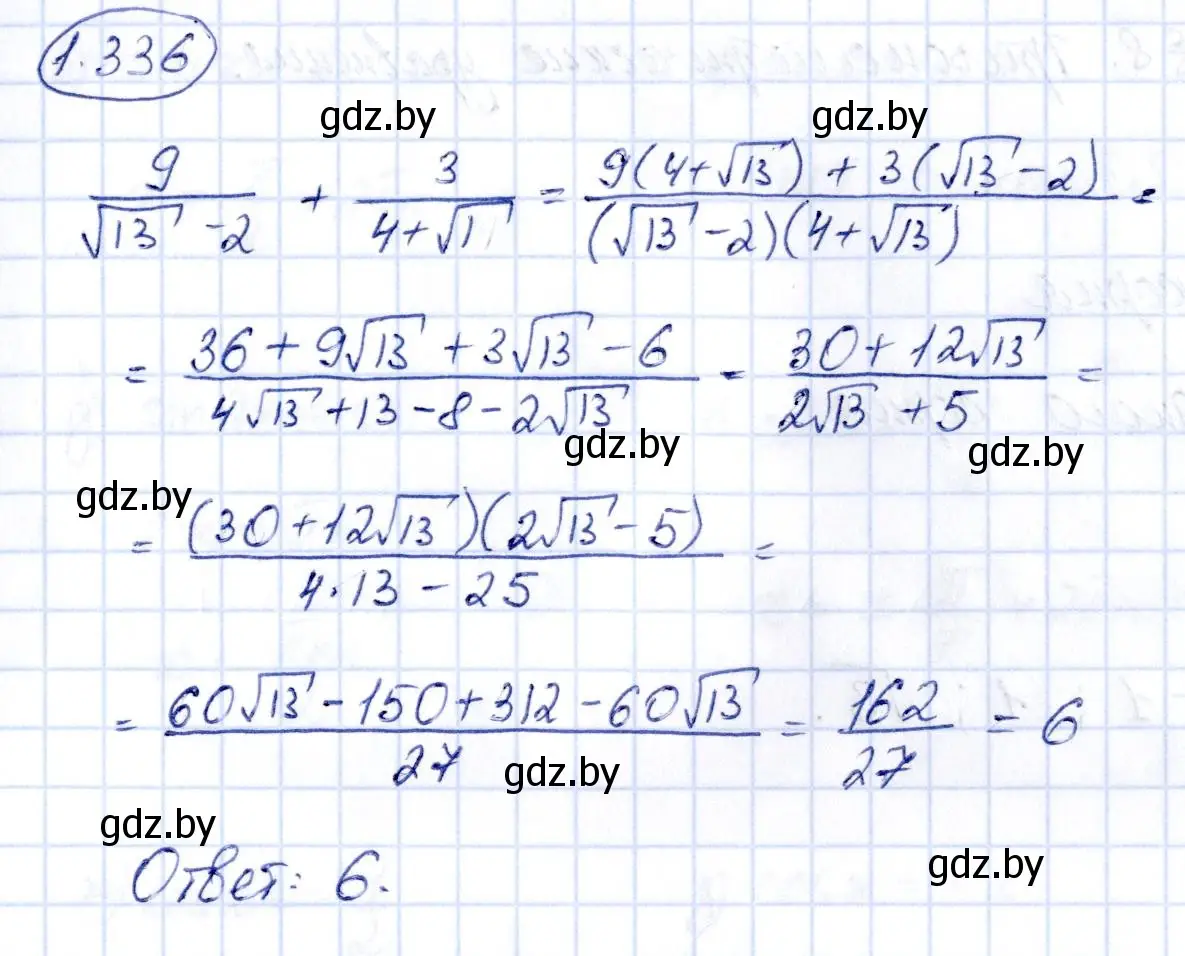 1.336
gdz.by gdz.by
9/(√13 -2) + 3/(4+√1) = (9(4+√13) + 3(√13 -2))/((√13 -2)(4+√13)) =
= (36+9√13 +3√13 -6)/(4√13 +13 -8 -2√13) = (30+12√13)/(2√13 +5) =
gdz.by gdz.by
gdz.by
= ((30+12√13)(2√13 -5))/(4·13 - 25) =
= (60√13 -150+312 -60√13)/27 = 162/27 = 6
gdz.by
gdz.by
Ответ: 6.
gdz.by